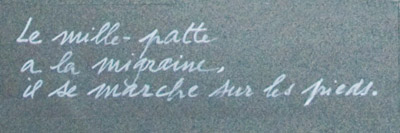 Le mille-patte
a la migraine,
il se marche sur les pieds.